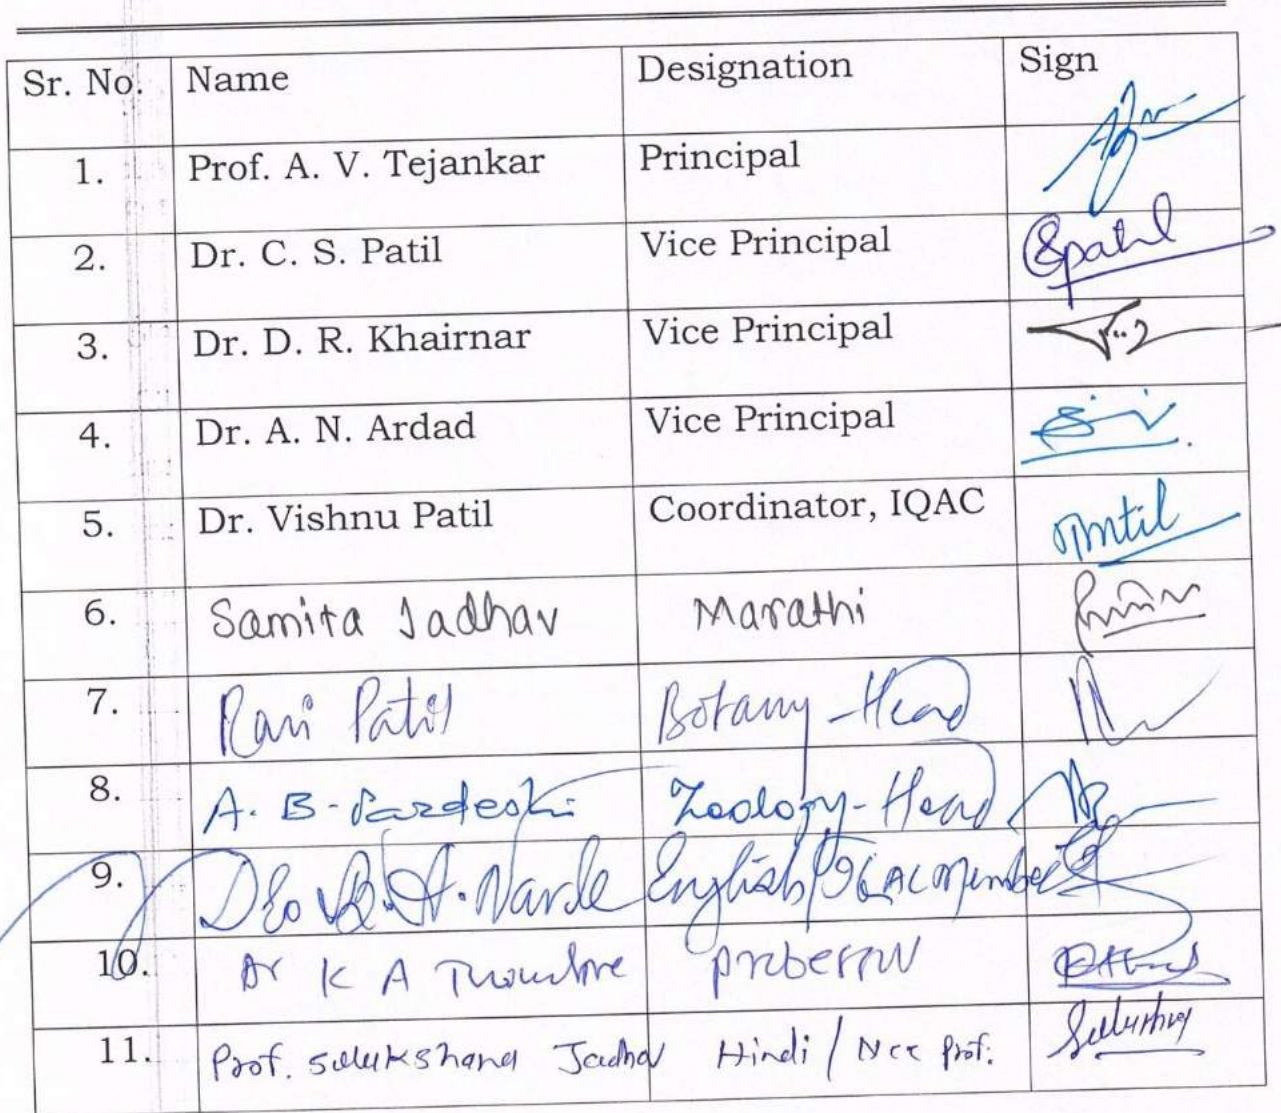 Sr. No. Name Designation Sign
1. Prof. A. V. Tejankar Principal
2. Dr. C. S. Patil Vice Principal Cspatil
3. Dr. D. R. Khairnar Vice Principal
4. Dr. A. N. Ardad Vice Principal
5. Dr. Vishnu Patil Coordinator, IQAC
6. Samita Jadhav Marathi
7. Ravi Patil Botany-Head
8. A. B. Pardeshi Zoology-Head
9. English/IQAC Member
10. Dr K A
11. Prof. Jadhav Hindi / Ncc Prof.